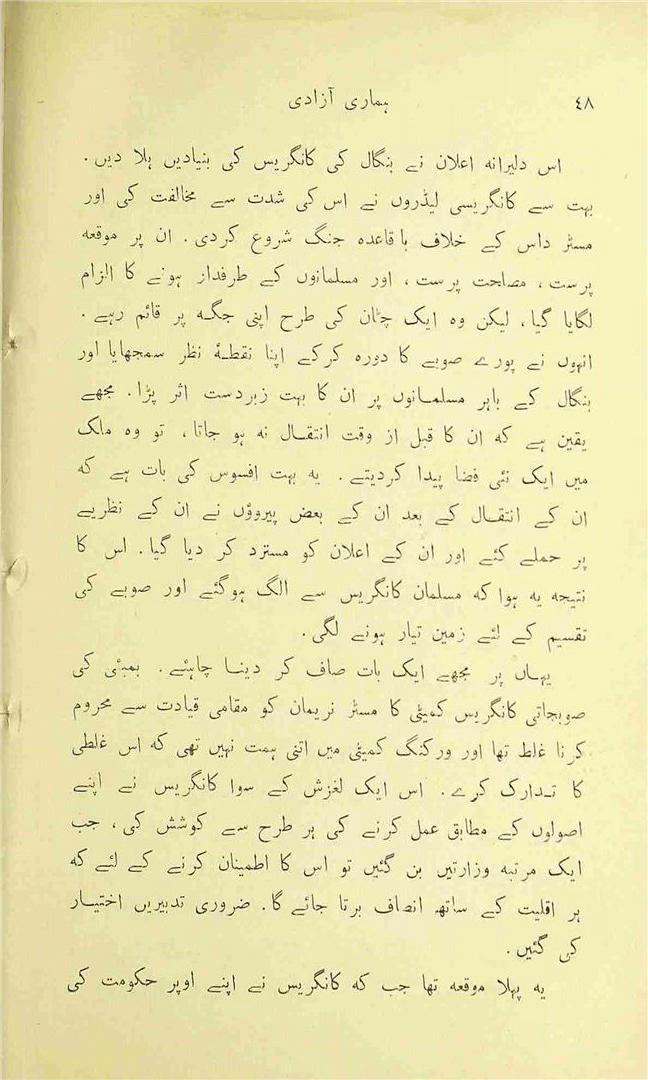 ٤٨ ہماری آزادی
اس دلیرانہ اعلان نے بنگال کی کانگریس کی بنیادیں ہلا دیں .
بہت سے کانگریسی لیڈروں نے اس کی شدت سے مخالفت کی اور
مسٹر داس کے خلاف باقاعدہ جنگ شروع کردی . ان پر موقعہ
پرست ، مصاحت پرست ، اور مسلمانوں کے طرفدار ہونے کا الزام
لگایا گیا ، لیکن وہ ایک چٹان کی طرح اپنی جگہ پر قائم رہے .
انہوں نے پورے صوبے کا دورہ کرکے اپنا نقطۂ نظر سمجھایا اور
بنگال کے باہر مسلمانوں پر ان کا بہت زبردست اثر پڑا . مجھے
یقین ہے کہ ان کا قبل از وقت انتقال نہ ہو جاتا ، تو وہ ملک
میں ایک نئی فضا پیدا کردیتے . یہ بہت افسوس کی بات ہے کہ
ان کے انتقال کے بعد ان کے بعض پیروؤں نے ان کے نظریے
پر حملے کئے اور ان کے اعلان کو مسترد کر دیا گیا . اس کا
نتیجہ یہ ہوا کہ مسلمان کانگریس سے الگ ہوگئے اور صوبے کی
تقسیم کے لئے زمین تیار ہونے لگی .
یہاں پر مجھے ایک بات صاف کر دینا چاہئے . بمبئی کی
صوبجاتی کانگریس کمیٹی کا مسٹر نریمان کو مقامی قیادت سے محروم
کرنا غلط تھا اور ورکنگ کمیٹی میں اتنی ہمت نہیں تھی کہ اس غلطی
کا تدارک کرے . اس ایک لغزش کے سوا کانگریس نے اپنے
اصولوں کے مطابق عمل کرنے کی ہر طرح سے کوشش کی ، جب
ایک مرتبہ وزارتیں بن گئیں تو اس کا اطمینان کرنے کے لئے کہ
ہر اقلیت کے ساتھ انصاف برتا جائے گا . ضروری تدبیریں اختیار
کی گئیں .
یہ پہلا موقعہ تھا جب کہ کانگریس نے اپنے اوپر حکومت کی